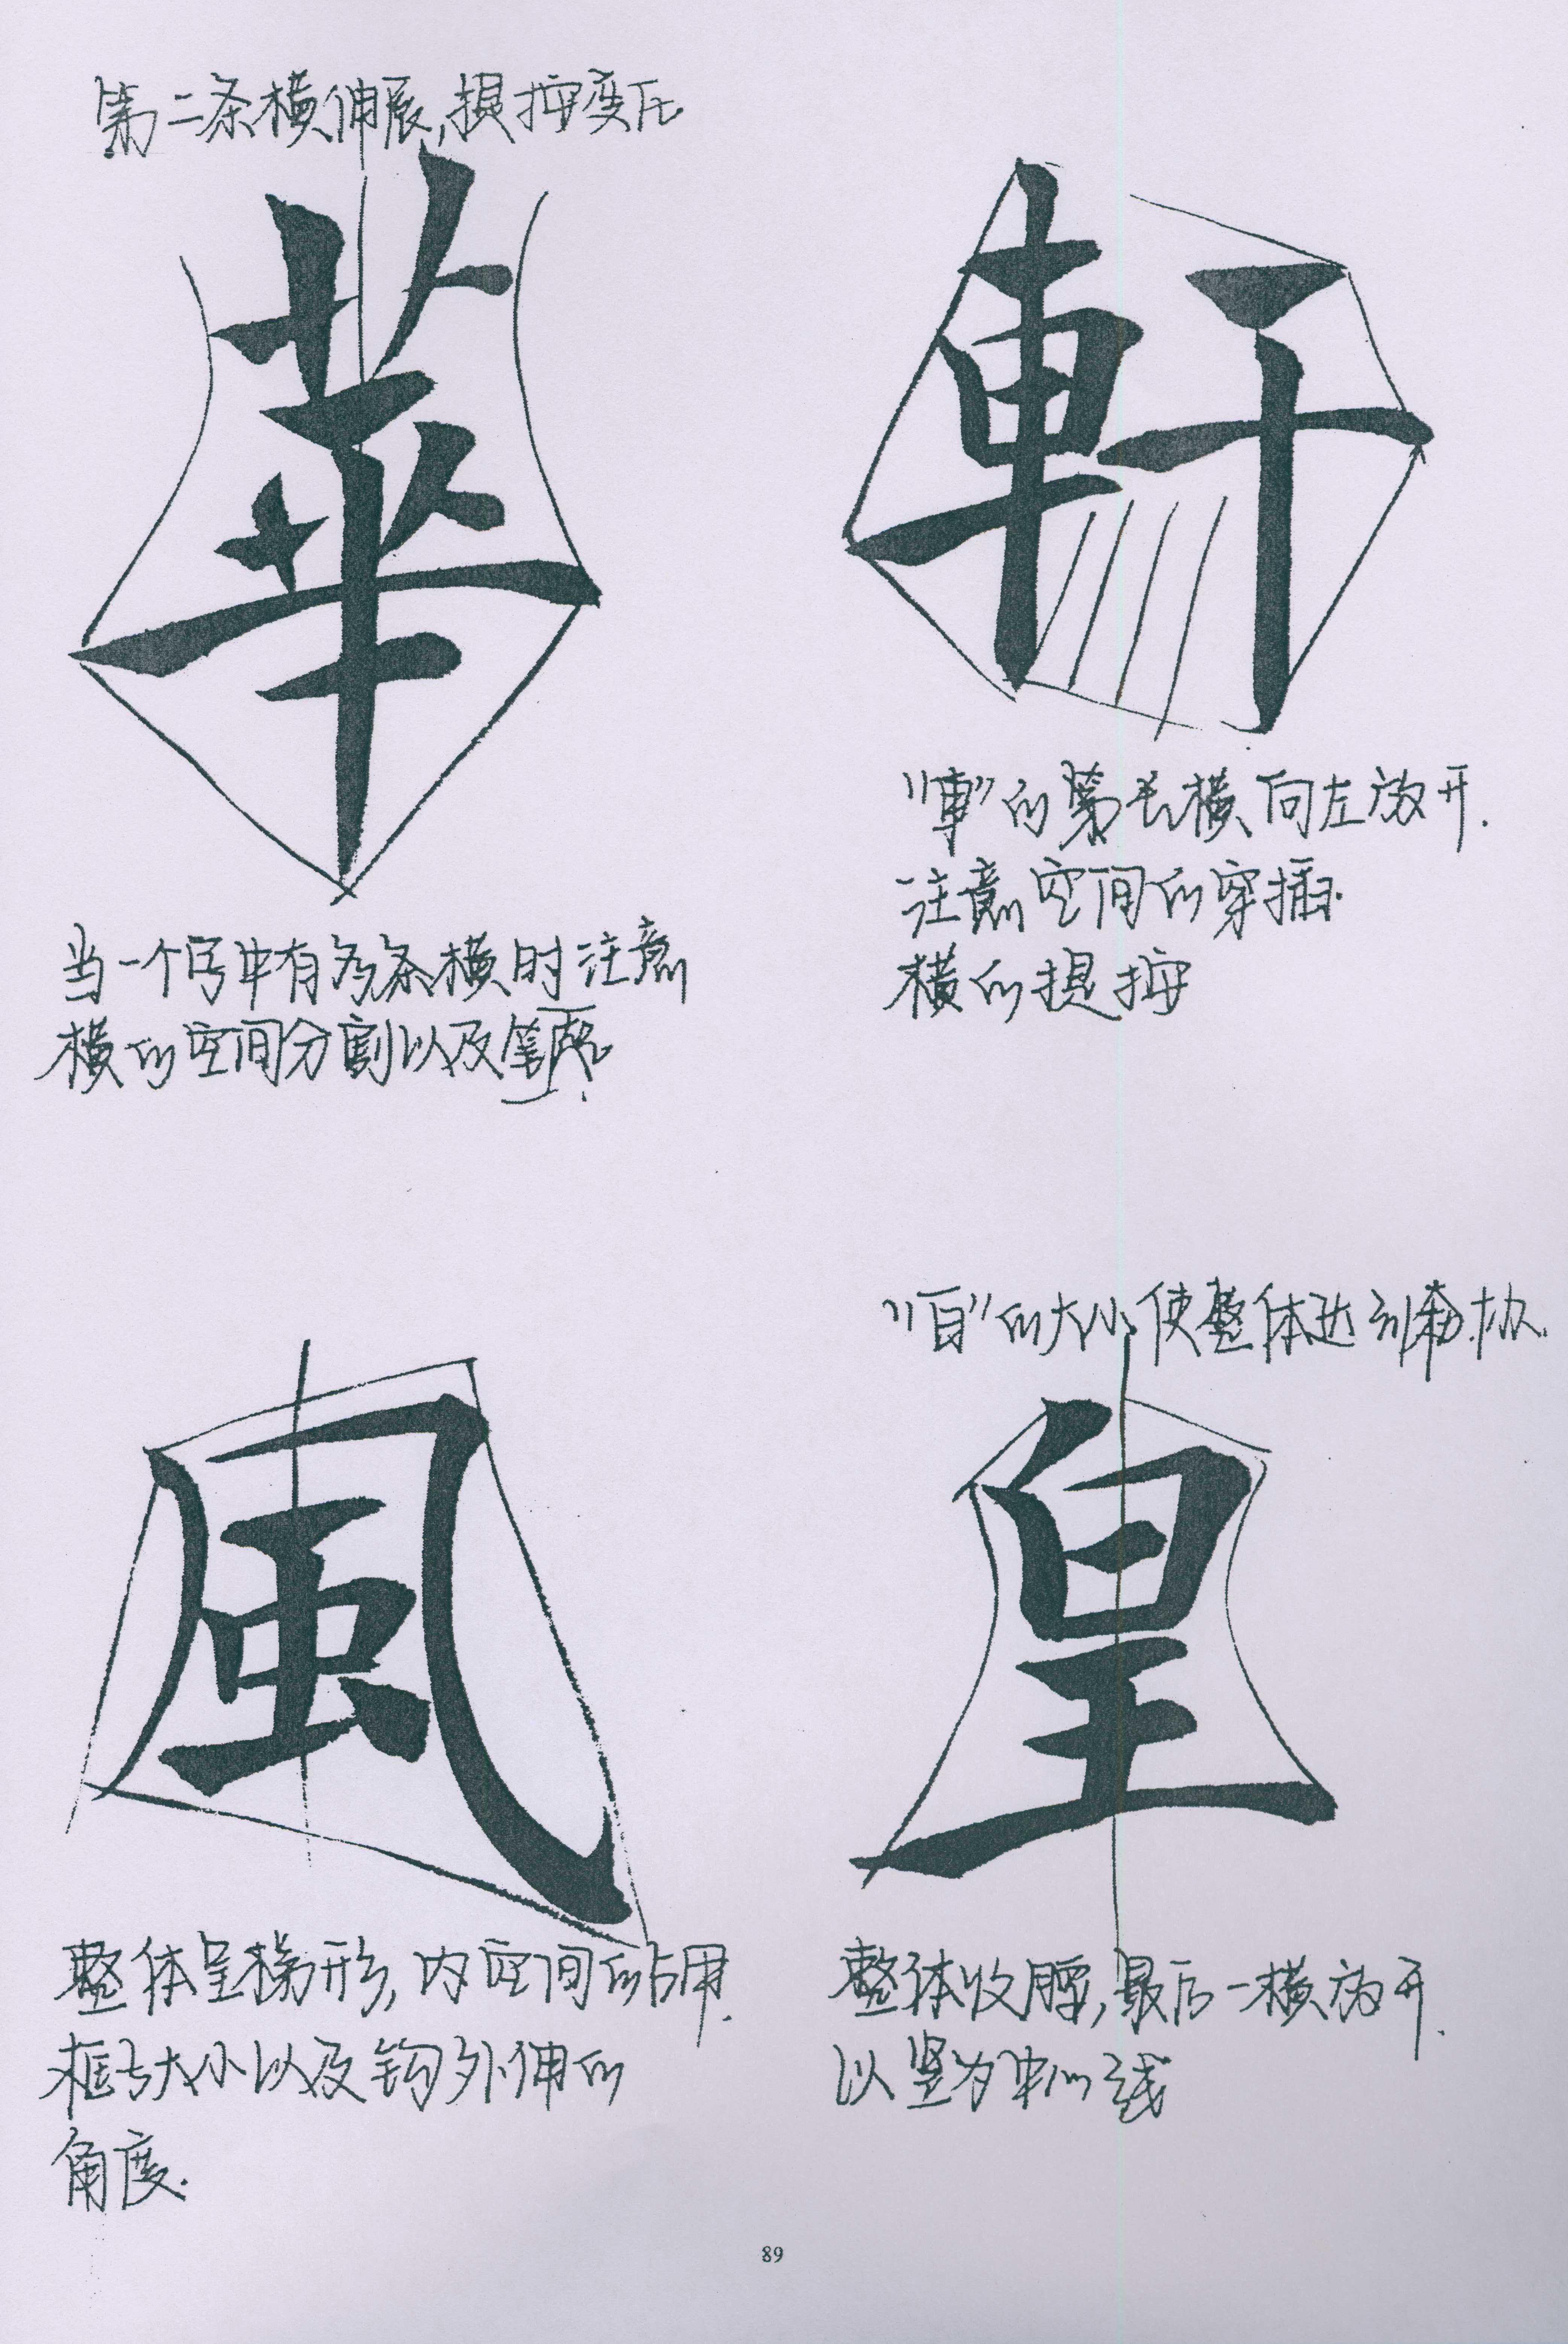 第二条横伸展,提按变化.
華
当一个字中有多条横时注意
横的空间分割以及笔顺.
軒
"車"的第长横向左放开.
注意空间的穿插.
横的提按
風
整体呈梯形,内空间的占用.
框与大小以及钩外伸的
角度.
"白"的大小使整体达到和协.
皇
整体收腰,最后一横放开.
以竖为中心线
89